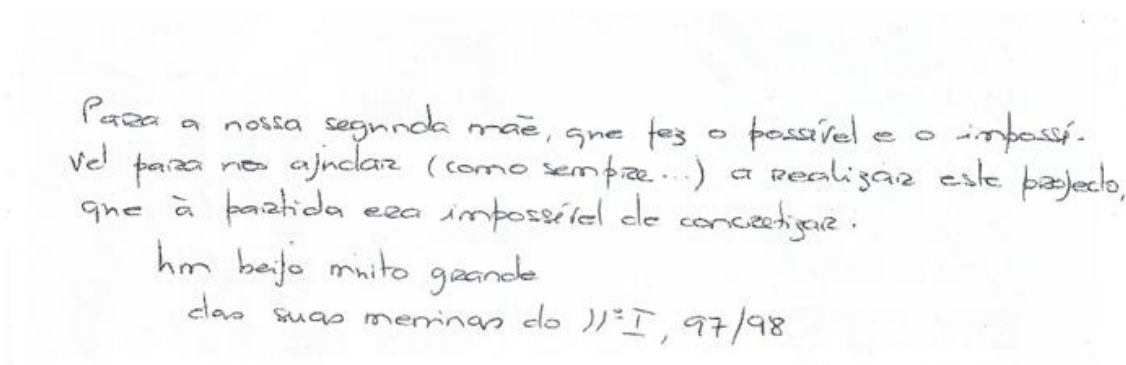 Para a nossa segunda mãe, que fez o possível e o impossí-
vel para nos ajudar (como sempre...) a realizar este projecto,
que à partida era impossível de concretizar.
Um beijo muito grande
das suas meninas do 11º I, 97/98